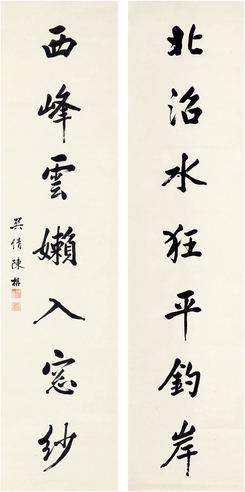 北沼水狂平釣岸
西峰雲嬾入窓紗
吳倩陳